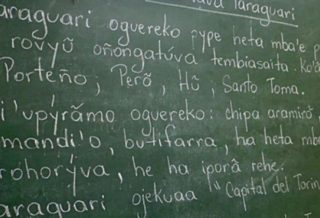 Paraguari
araguari oguereko ype heta mba'e p
rovyũ oñongatúva tembiasaita. Ko'ã
Porteño, Perõ, Hũ, Santo Toma.
i'upyrãmo oguereko: chipa aramirõ,
mandi'o, butifarra, ha heta mb
rohorýva, he ha iporã rehe.
araguari ojekuaa "Capital del Torin